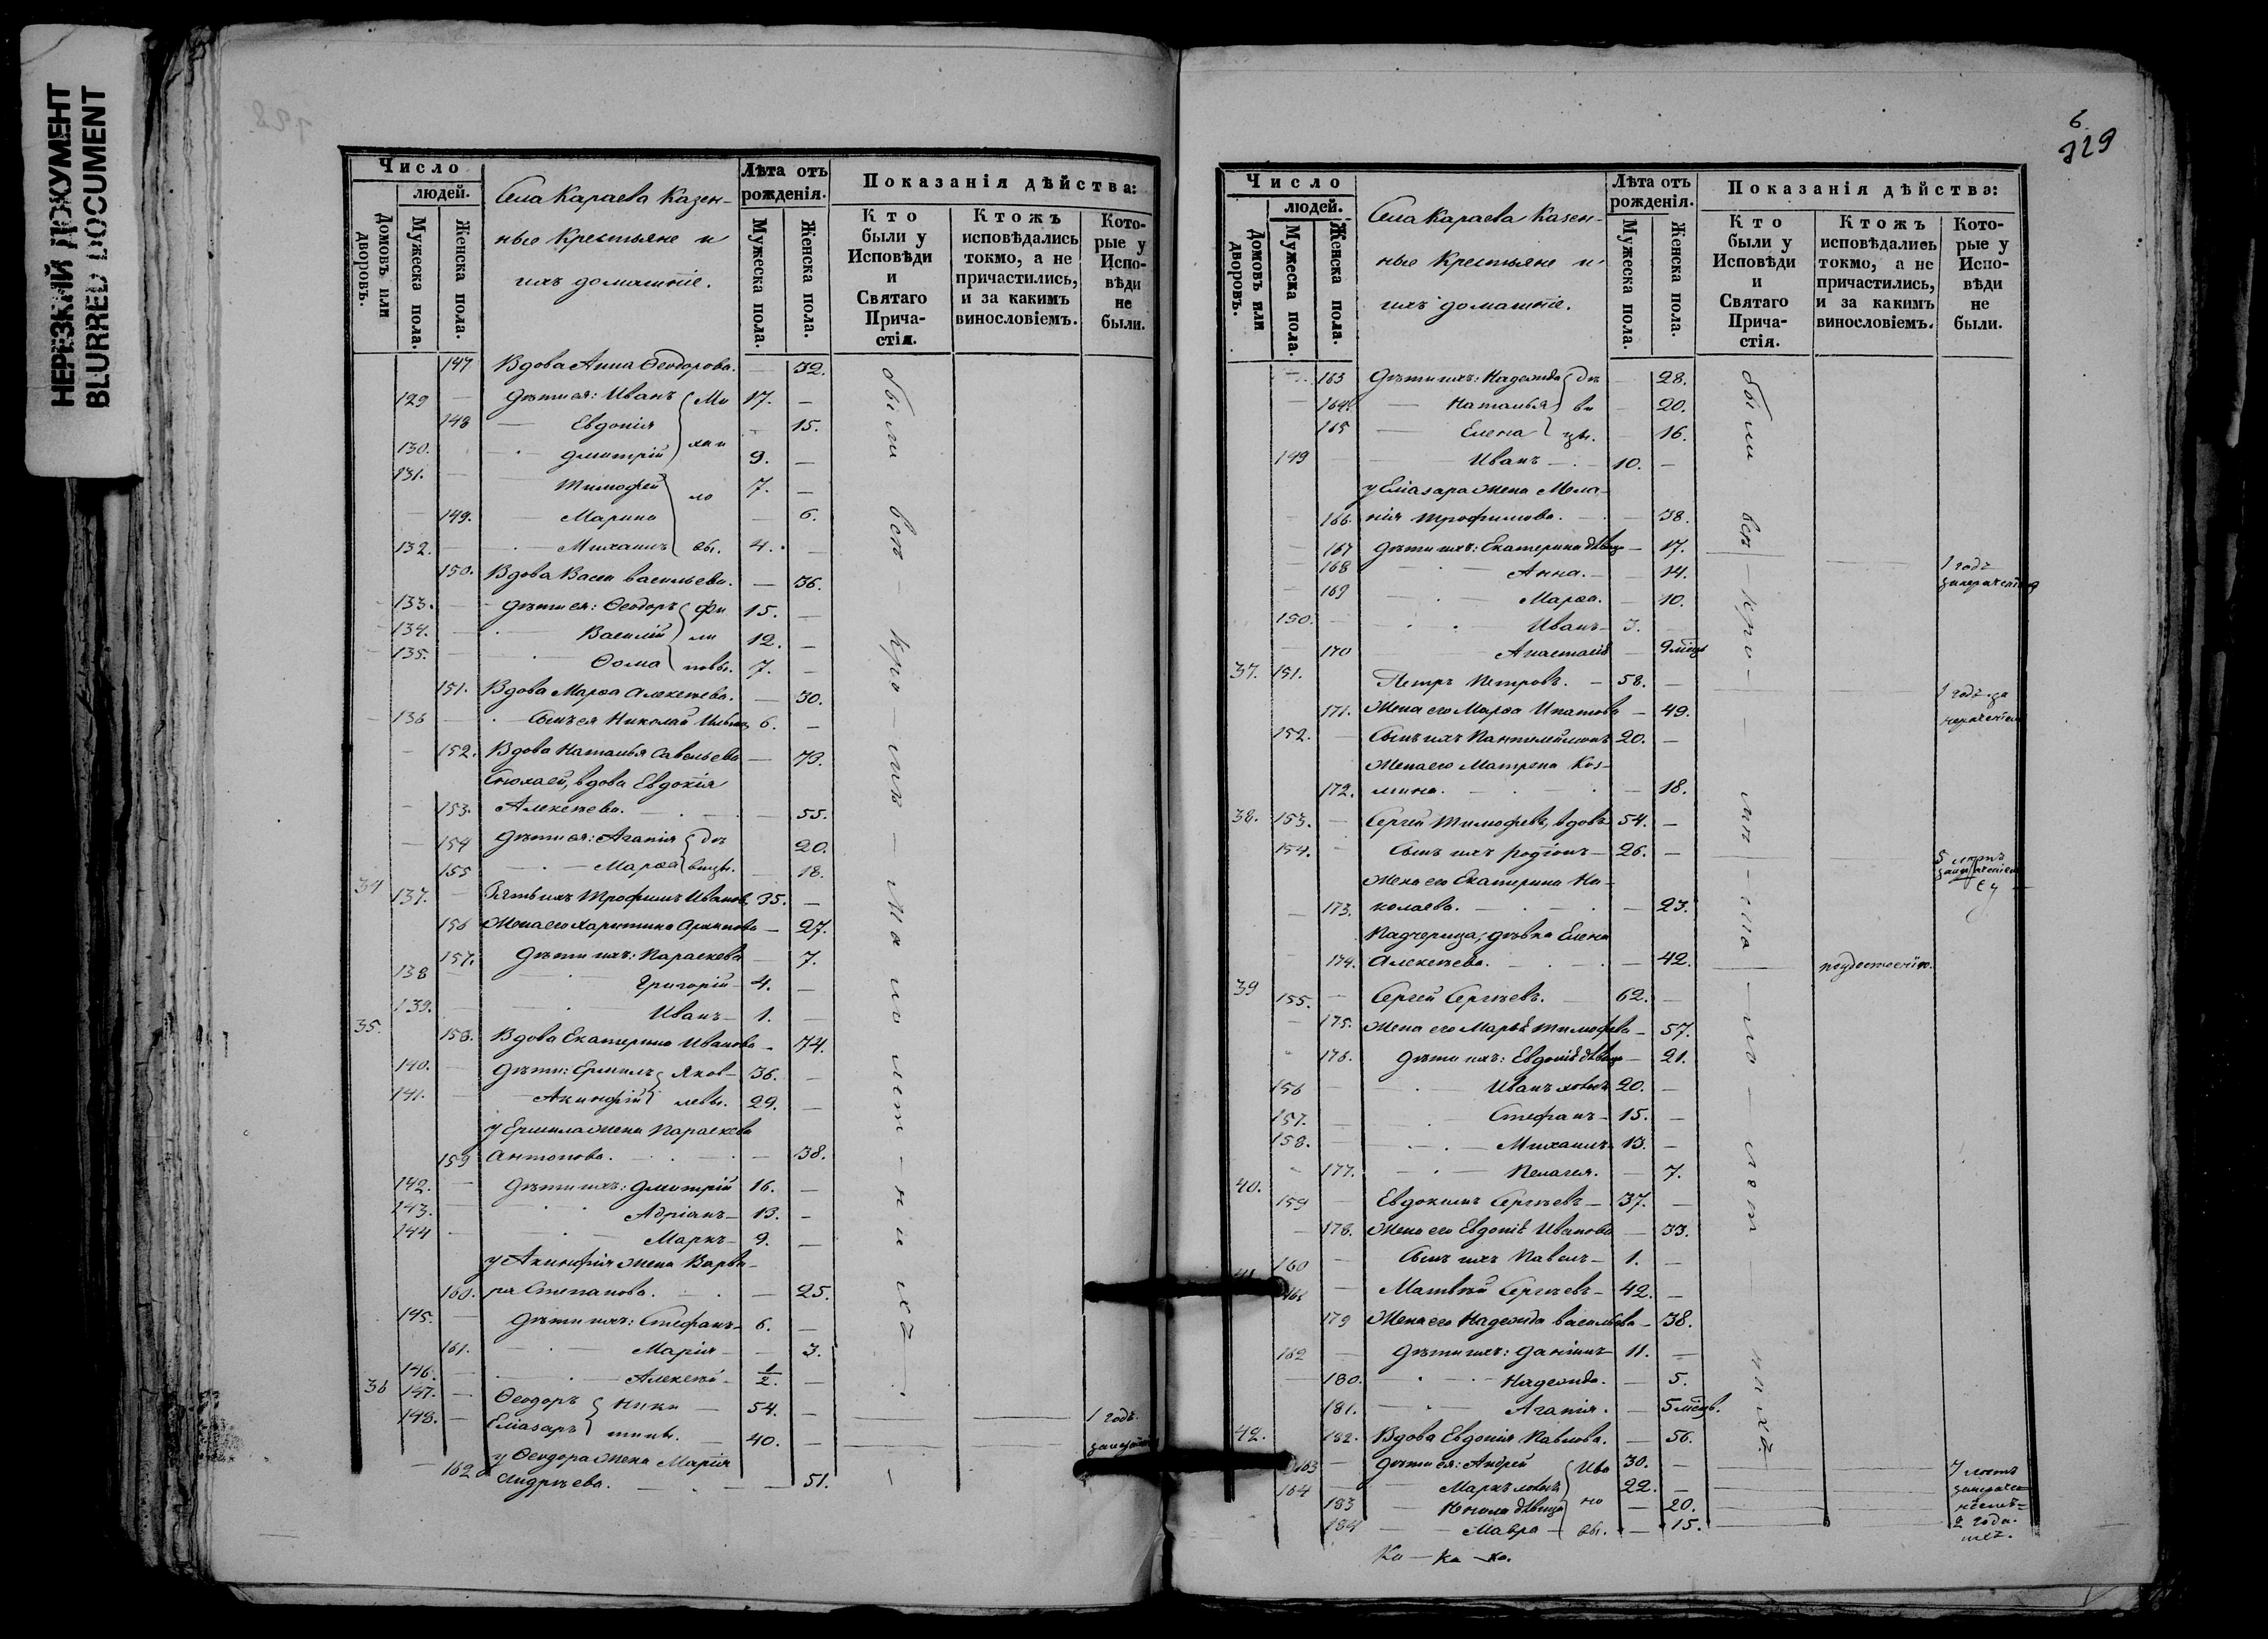 НЕРЕЗКИЙ ДОКУМЕНТ
BLURRED DOCUMENT
Число
людей.
Домовъ или дворовъ.
Мужеска пола.
Женска пола.
Села Караева Казен-
ные Крестьяне и
ихъ домашніе.
Лѣта отъ рожденія.
Мужеска пола.
Женска пола.
Показанія дѣйства:
Кто были у Исповѣди и Святаго Прича- стія.
Ктожъ исповѣдались токмо, а не причастились, и за какимъ винословіемъ.
Кото- рые у Испо- вѣди не были.
были всѣ кро - мѣ - ма ло лет - ни ихъ
147 Вдова Анна Ѳеодорова. — 32.
129 — Дѣти ея: Иванъ Ми 17. —
148 — Евдокія — 15.
130. — Дмитрій хаи 9. —
131. — Тимофей 7. —
149. — Марина ло — 6.
132. — Михаилъ вы. 4. —
150. Вдова Васса Васильева. — 36.
133. — Дѣти ея: Ѳеодоръ Фи 15. —
134. — Василій ли 12. —
135. — Ѳома повы. 7. —
151. Вдова Марѳа Алексѣева. — 30.
136 — Сынъ ея Николай 6. —
152. Вдова Наталья Савельева — 73.
Сноха ей, вдова Евдокія
153. Алексѣева. — 55.
154 Дѣти ея: Агапія дѣ 20.
155 — Марѳа вицы. — 18.
34 137. — Зять ихъ Трофимъ Ивановъ 35. —
156 Жена его Харитина Архипова — 27.
157. Дѣти ихъ: Параскева — 7.
138 Григорій — 4. —
139. Иванъ — 1. —
35. 158. Вдова Екатерина Иванова — 74.
140. — Дѣти: Ермилъ Яков- 36. —
141. — Акинфій левы. 29. —
у Ермила жена Параскева
159 Антонова. — 38.
142. — Дѣти ихъ: Дмитрій 16. —
143. — Адріанъ — 13. —
144 — Маркъ — 9. —
у Акинфія жена Варва-
160. ра Степанова. — 25.
145. — Дѣти ихъ: Стефанъ — 6. —
161. — Марія — 3.
146. — Алексѣй — 1/2. —
36 147. — Ѳеодоръ Ники — 54. —
148. — Еліазаръ тины. — 40. — 1 годъ
у Ѳеодора жена Марія
162 Андреева. — 51. —
6.
329
Число
людей.
Домовъ или дворовъ.
Мужеска пола.
Женска пола.
Села Караева Казен-
ные Крестьяне и
ихъ домашніе.
Лѣта отъ рожденія.
Мужеска пола.
Женска пола.
Показанія дѣйства:
Кто были у Исповѣди и Святаго Прича- стія.
Ктожъ исповѣдались токмо, а не причастились, и за какимъ винословіемъ.
Кото- рые у Испо- вѣди не были.
были всѣ - кро - мѣ - ма - ло - лет - нихъ
— 163 Дѣти ихъ: Надежда дѣ — 28.
— 164. — Наталья ви — 20.
165 — Елена цы. — 16.
149 — Иванъ — 10. —
у Еліазара жена Мела-
166. нія Трофимова. — 38.
167 Дѣти ихъ: Екатерина дѣвица — 17. 1 годъ
168 — Анна. — 14.
169 — Марѳа. — 10.
150. — Иванъ — 3.
170 Анастасія — 9 мѣсц.
37. 151. Петръ Петровъ. — 58. — 1 годъ за
171. Жена его Марѳа Ипатова — 49.
152. — Сынъ ихъ Пантелеймонъ 20. —
Жена его Матрена Коз-
172. мина. — 18.
38. 153. — Сергей Тимофеевъ, вдовъ 54. —
154. — Сынъ ихъ Родіонъ — 26. — 5 лѣтъ
Жена его Екатерина Ни-
173. колаева. — 23.
Падчерица, дѣвка Елена
174. Алексѣева. — 42.
39 155. — Сергей Сергѣевъ. 62. —
175. Жена его Марья Тимофеева — 57.
176. Дѣти ихъ: Евдокія дѣвица — 21.
156 — Иванъ холостъ 20. —
157. — Стефанъ — 15. —
158. — Михаилъ 13. —
177. — Пелагея. — 7.
40. 159 — Евдокимъ Сергѣевъ — 37. —
178. Жена его Евдокія Иванова — 33.
160 — Сынъ ихъ Павелъ — 1. —
41 161 — Матвѣй Сергѣевъ — 42. —
179 Жена его Надежда Васильева — 38.
162 — Дѣти ихъ: Даніилъ 11. —
180. — Надежда. — 5.
181. — Агапія. — 5 мѣсц.
42. 182. Вдова Евдокія Павлова. — 56.
163 — Дѣти ея: Андрей Ива 30. — 7 лѣтъ
164 — Маркъ холостъ 22. —
183 дѣвица но — 20.
184 — Мавра — вы. — 15. 2 года
Ка — ка — ка.